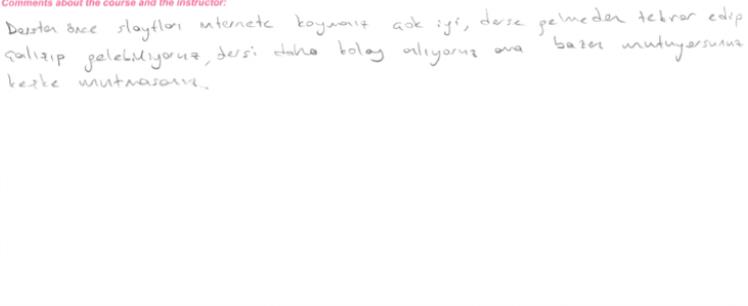 Comments about the course and the instructor:
Dersten önce slaytları internete koymanız çok iyi, derse gelmeden tekrar edip
çalışıp gelebiliyoruz, dersi daha kolay anlıyoruz ama bazen unutuyorsunuz
keşke unutmasanız.